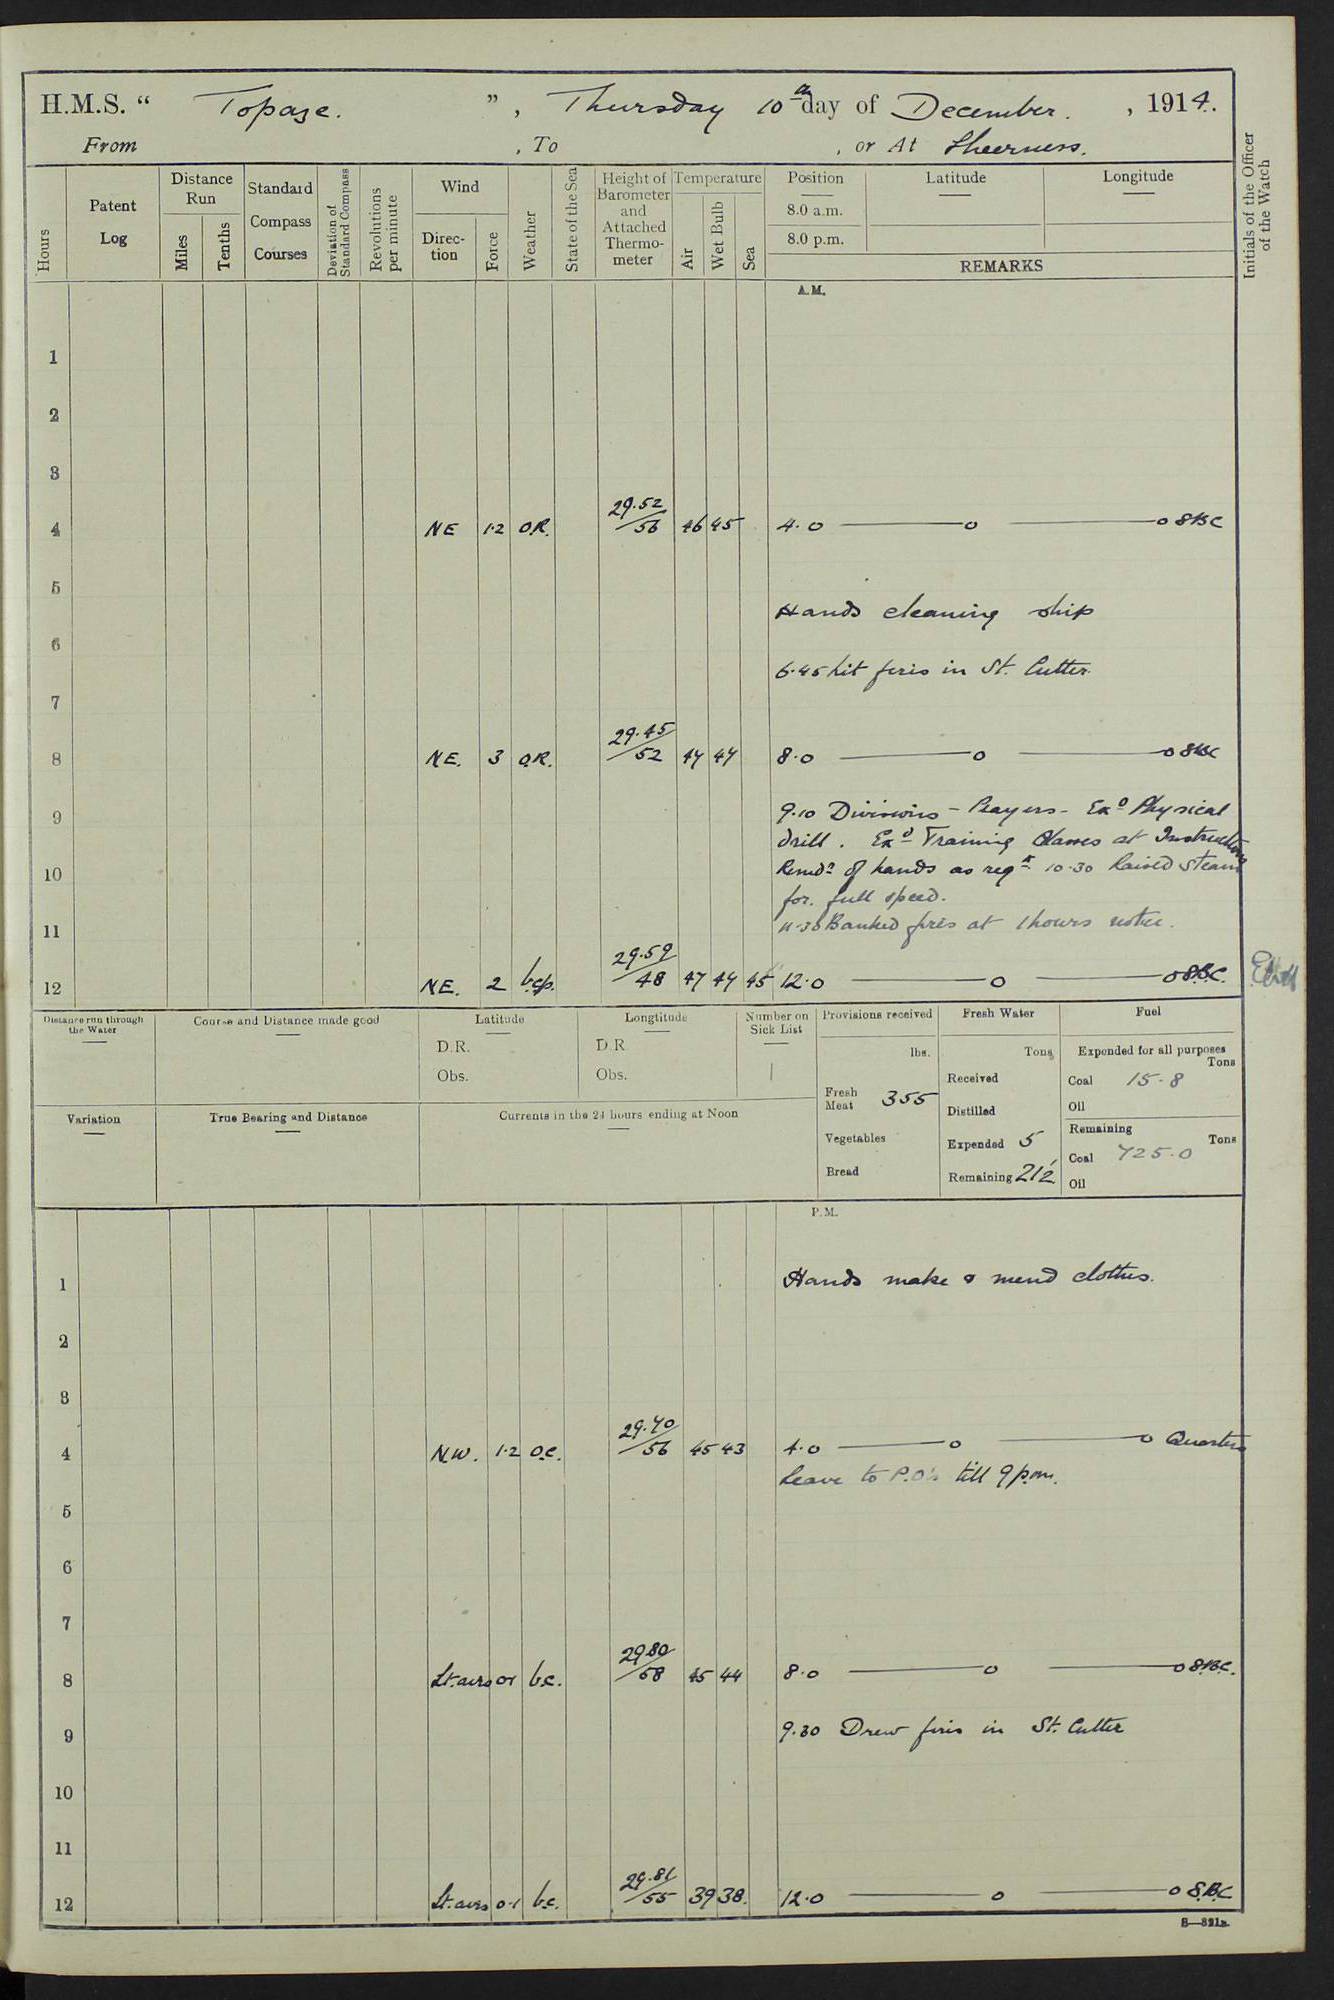 H.M.S. “ Topaze. ” , Thursday 10th day of December. , 1914.
From , To , or At Sheerness.
Hours Patent Log Distance Run Miles Tenths Standard Compass Courses Deviation of Standard Compass Revolutions per minute Wind Direc- tion Force Weather State of the Sea Height of Barometer and Attached Thermo- meter Temperature Air Wet Bulb Sea Position Latitude Longitude
8.0 a.m.
8.0 p.m.
REMARKS
Initials of the Officer of the Watch
A.M.
1
2
3
4 NE 1·2 O.R. 29·52/56 46 45 4·0 —— o —— o SBC
5
Hands cleaning ship
6
6·45 Lit fires in St. Cutter.
7
8 NE. 3 O.R. 29·45/52 47 47 8·0 —— o —— o SBC
9 9·10 Divisions - Prayers - Exd Physical
drill. Exd Training Classes at Instruction
10 Remdr of hands as reqd. 10·30 Raised steam
for. full speed.
11 11·30 Banked fires at 1 hours notice.
12 NE. 2 b.c.p. 29·59/48 47 47 45 12·0 —— o —— o S.B.C.
Distance run through the Water Course and Distance made good Latitude Longtitude Number on Sick List Provisions received Fresh Water Fuel
D.R. D.R lbs. Tons Expended for all purposes Tons
Obs. Obs. 1 Received Coal 15·8
Fresh Meat 355 Distilled Oil
Variation True Bearing and Distance Currents in the 24 hours ending at Noon
Remaining Tons
Vegetables Expended 5 Coal 725·0
Bread Remaining 212 Oil
P.M.
1 Hands make & mend clothes.
2
3
4 N.W. 1·2 O.C. 29·70/56 45 43 4·0 —— o —— o Quarters
Leave to P.O's till 9 p.m.
5
6
7
8 Lt. airs 01 b.c. 29.80/58 45 44 8·0 —— o —— o S.B.C.
9 9·30 Drew fires in St. Cutter
10
11
12 Lt. airs 0·1 b.c. 29·81/55 39 38. 12·0 —— o —— o S.B.C
S—321a.